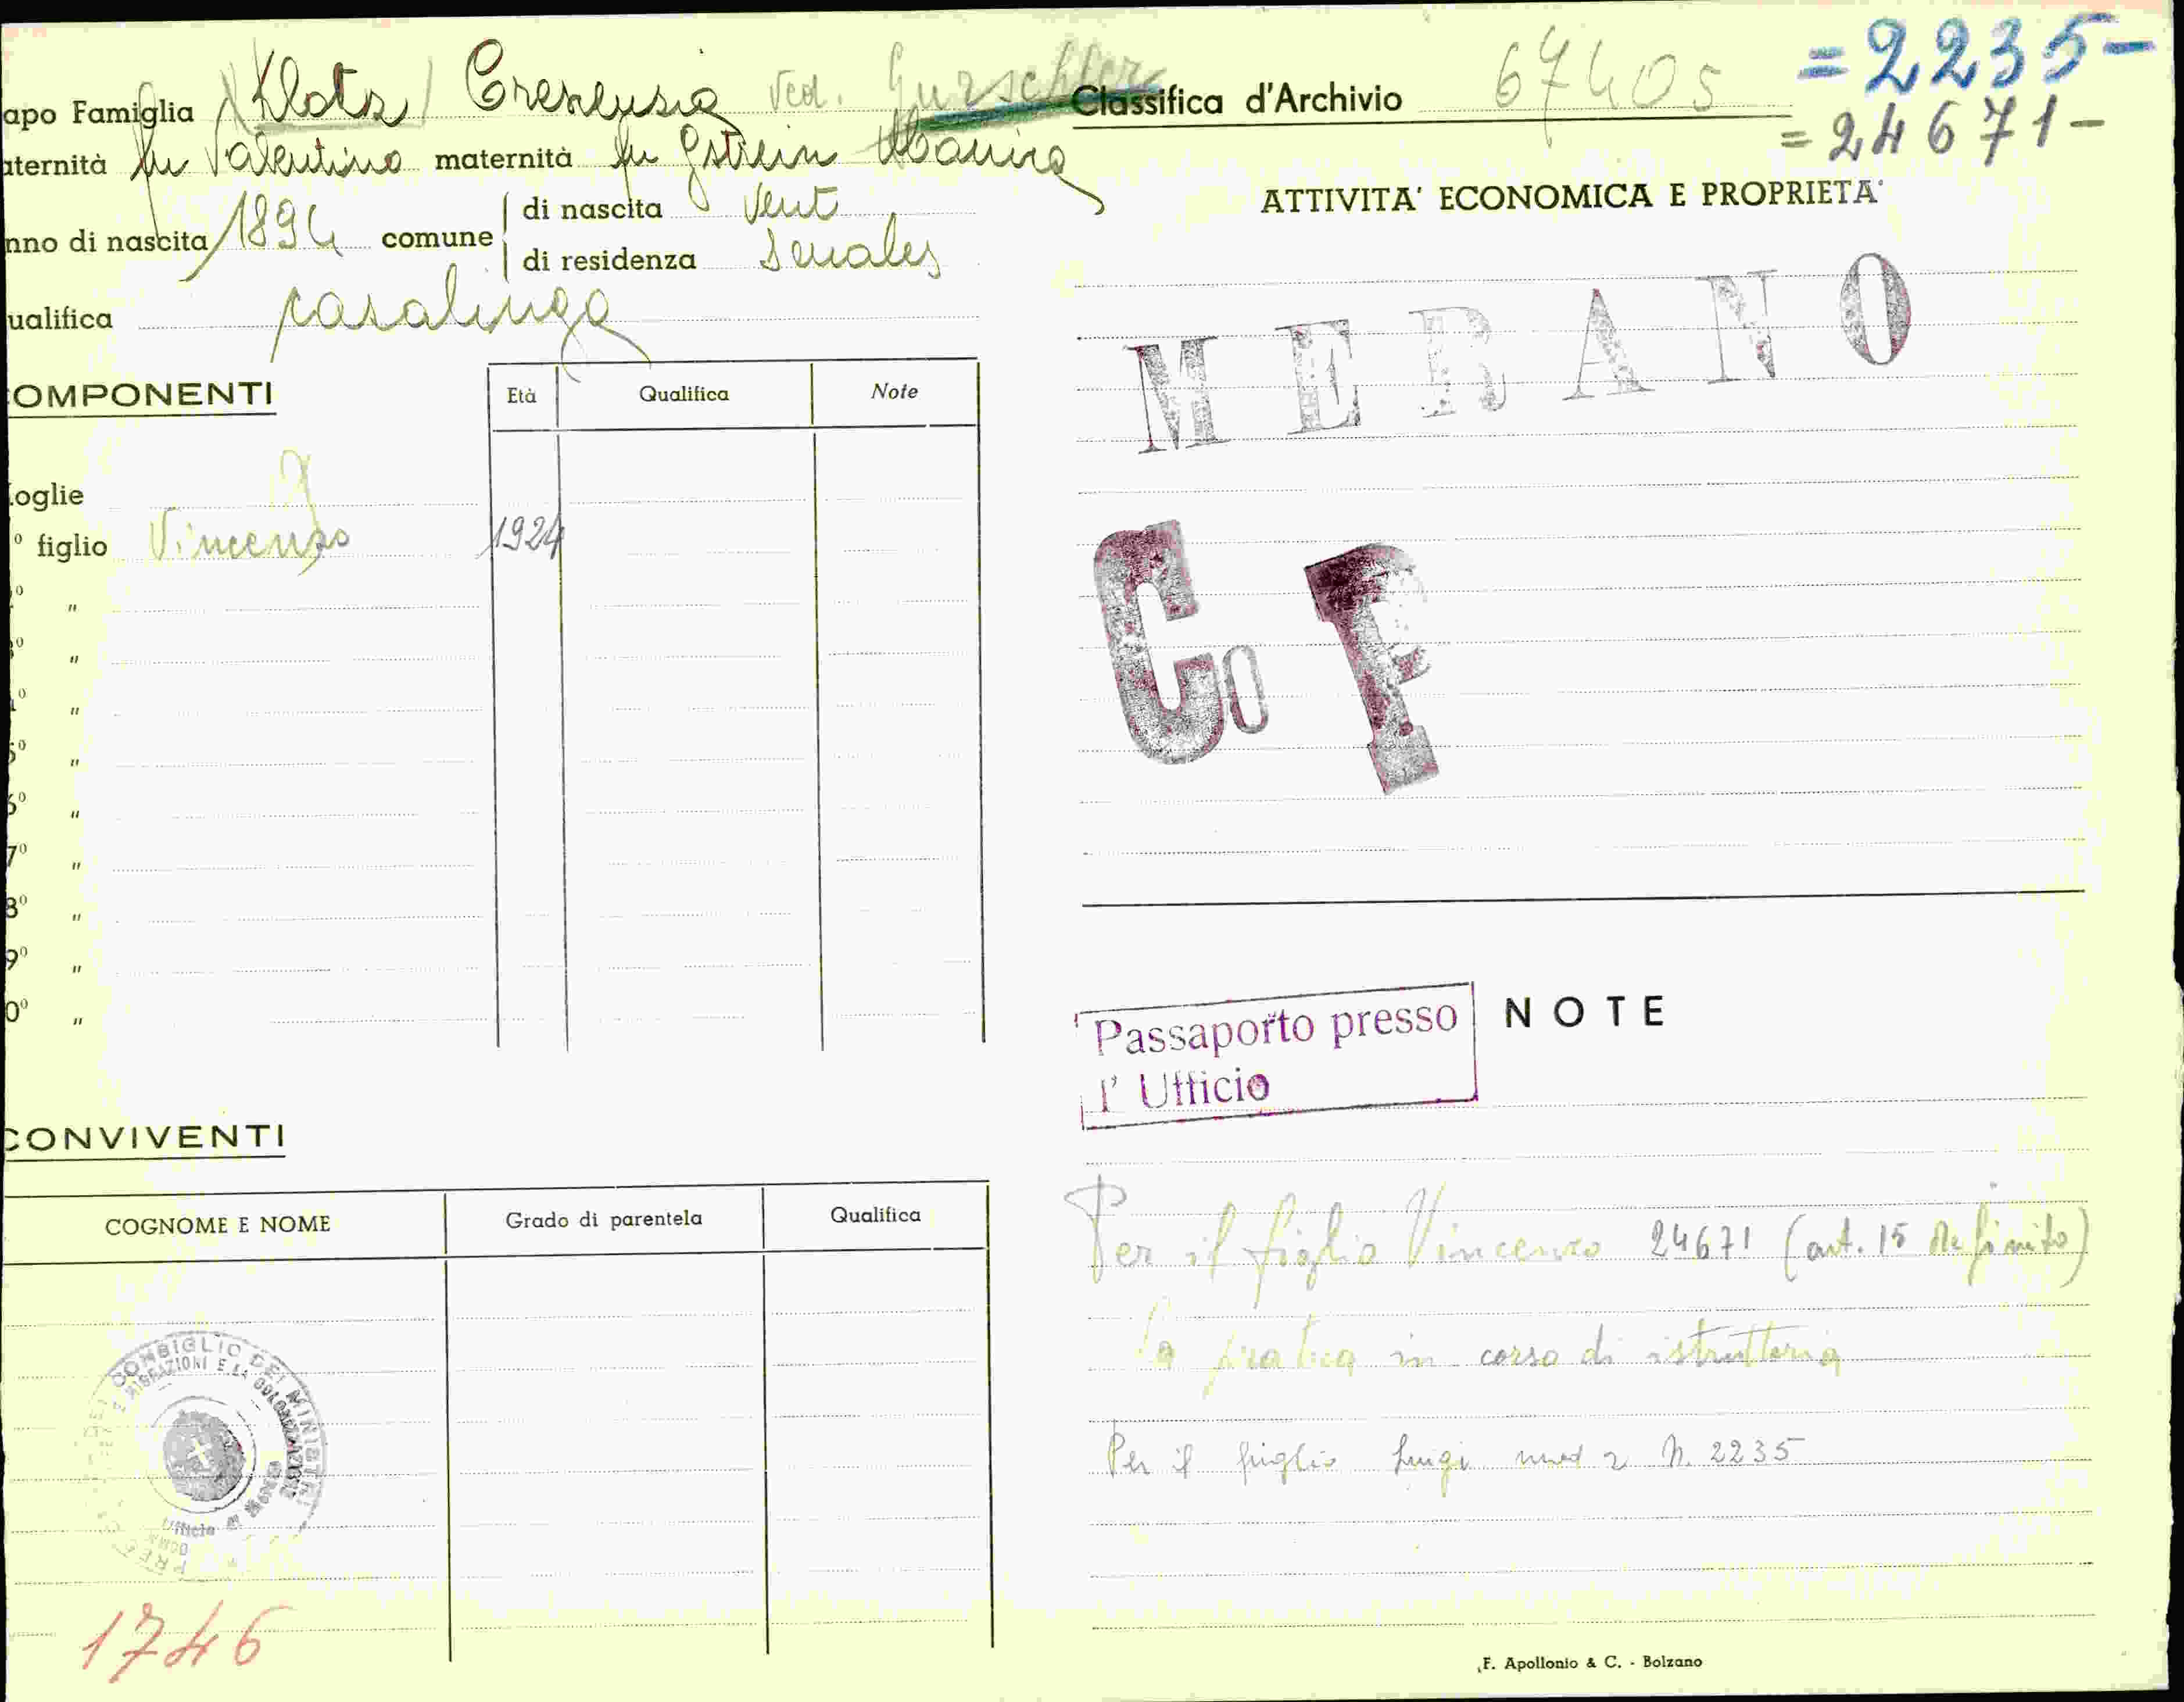 apo Famiglia Klotz Crescenzia ved. Gurschler
aternità fu Valentino maternità fu Gstrein Marina
nno di nascita 1894 comune di nascita Vent
di residenza Senales
ualifica casalinga
OMPONENTI
Età Qualifica Note
oglie
º figlio Vincenzo 1924
º "
º "
º "
5º "
6º "
7º "
8º "
9º "
0º "
CONVIVENTI
COGNOME E NOME Grado di parentela Qualifica
CONSIGLIO DEI MINISTRI
1746
Classifica d'Archivio 67405
=2235-
=24671-
ATTIVITA' ECONOMICA E PROPRIETA'
MERANO
Co F
Passaporto presso
l' Ufficio
NOTE
Per il figlio Vincenzo 24671 (art. 15 definito)
la pratica in corso di istruttoria
Per il figlio Luigi mod 2 N. 2235
F. Apollonio & C. - Bolzano